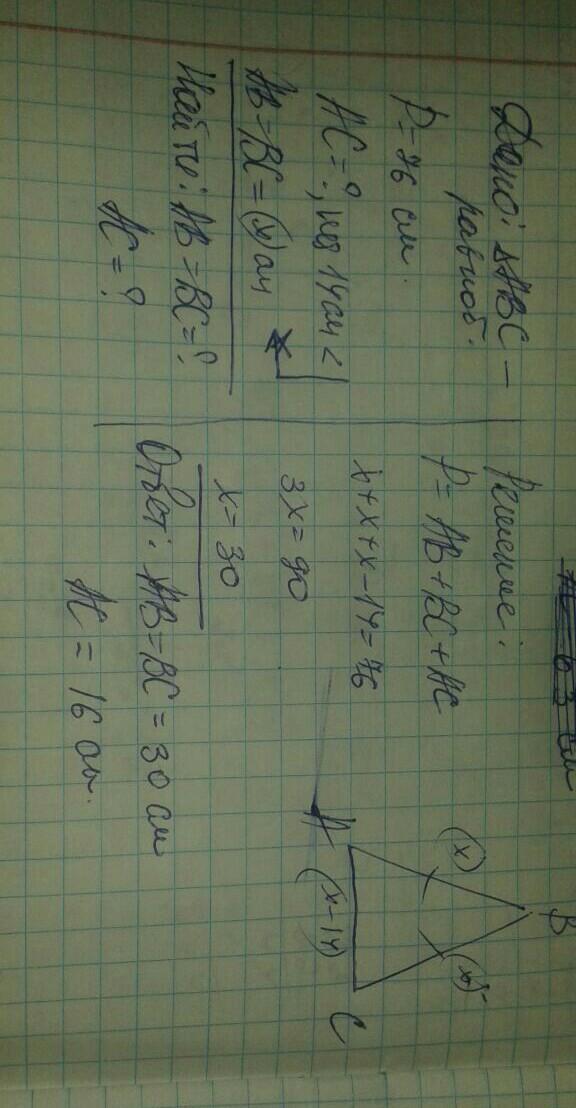 Дано: △ABC –
равноб.
P = 76 см.
AC = ?, на 14 см <
AB = BC = (x) см
Найти: AB = BC = ?
AC = ?
Решение:
P = AB + BC + AC
x + x + x – 14 = 76
3x = 90
x = 30
Ответ: AB = BC = 30 см
AC = 16 см.
B
(x)
(x)
A
(x – 14)
C